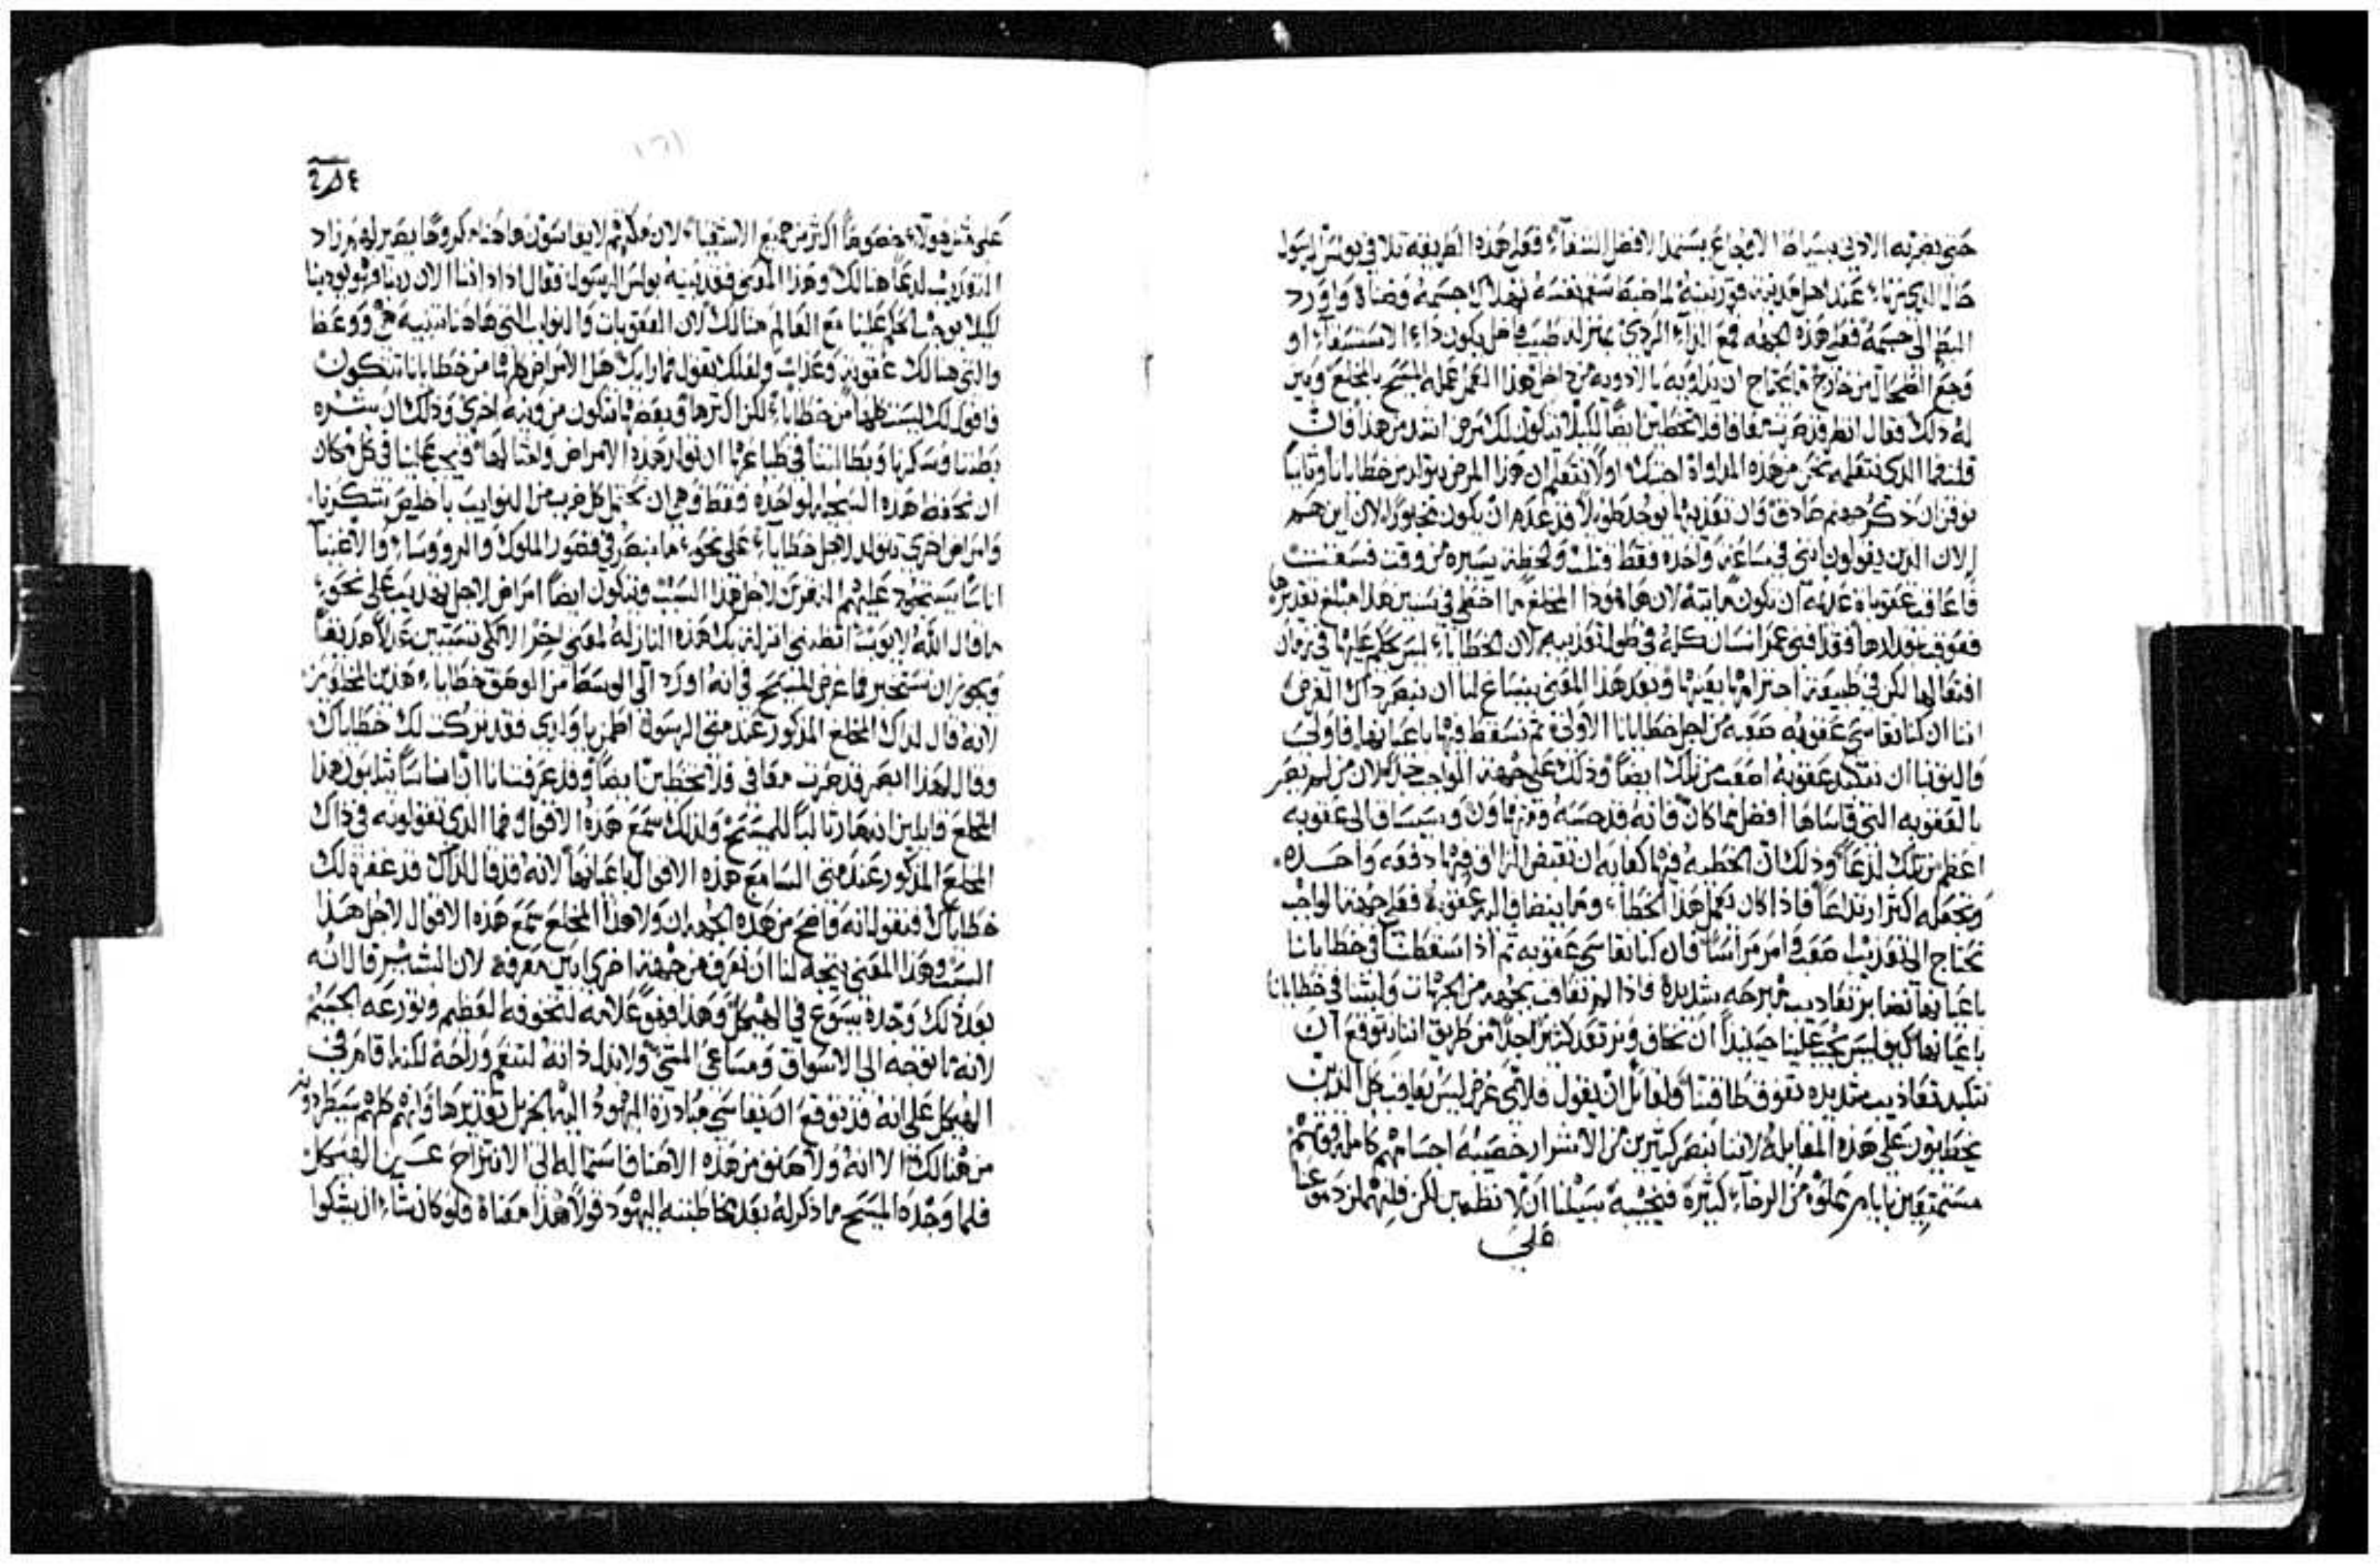 حتى بضربه الادنى بسياط الاوجاع يستمد الافضل الشفآء فعلى هذه الطريقة تلافى بولس الرسول
حال الذي زنا عند اهل قرنتيه
المظ الى جسمه فعلى هذه الجهه قمع الدآء الردي بمنزلة طبيب فاضل يكون داء الاستسقآء او
وجع الطحال من خارج فما يحتاج ان يداويه بالادويه من داخل هذا العمل عمله المسيح بالمخلع وبين
له ذلك فقال انظر قد صرت معافا فلا تخطين ايضًا لكيلا يتكون لك مرض اشد من هذا فان
قلت فما الذي نتعلمه نحن من هذه المداواة اجبتك اولًا نتعلم ان هذا المرض يتولد من خطايانا وثانيًا
نوقن ان ذكر جهنم صادق وان تعذيبها يوجد طويلًا قد عدم ان يكون محدودًا لان اين هم
الان الذين يقولون انني في ساعة واحده فقط قتلت ولحظة يسيره من وقت فسقت
فاعاقب عقوبة عادمة ان تكون مائتة لان هاهوذا المخلع ما اخطى في سنين هذا مبلغ تقديرها
فعوقب بعددها فقد افنى عمر انسان كله في طول تعذيبه لان الخطايا ليس يحكم عليها في زمان
افتعالها لكن في طبيعة اجترامها بعينها وبعد هذا المعنى ينساغ لنا ان نبصر ذاك الغرض
اننا ان كنا نقاسي عقوبه صعبه من اجل خطايانا الاولى ثم نسقط فيها باعيانها فاولى
واليق بنا ان نتكبد عقوبة اصعب من تلك ايضًا وذلك على جهة الواجب جدًا لان من لم يصر
بالعقوبه التي قاساها افضل مما كان فانه قد حسبه وتهاون وسيساق الى عقوبه
اعظم من تلك لذعًا وذلك ان الخطيه فيها كفايه ان تقبض الزالق فيها دفعه واحده
وتجعله اكثر ارتداعًا فاذا كان تعمل هذا الخطا وما ينضاف اليه عقوبة فعلى جهة الواجب
تحتاج الى تعذيب صعب وامر مراسًا فان كنا نقاسي عقوبه ثم اذا سقطنا في خطايانا
باعيانها نصابر تعاذيب مبرحه شديدة فاذا لم نعاقب بجهه من الجهات ولبثنا في خطايانا
باعيانها كيف ليس يجب علينا حينئذًا ان نخاف ونرتعد كثيرًا جدًا من طريق اننا نتوقع ان
نتكبد تعاذيب شديده تفوق طاقتنا ولقائل ان يقول فلاي غرض ليس يعاقب كل الذين
يخطيون على هذه المقابله لاننا نبصر كثيرين من الاشرار خصيبه اجسامهم كامله قوتهم
مستمتعين بايام مملوه من الرخآء كثيرة فنجيبه سبيلنا ان لا نطمين لكن فلتهملن دموعنا
على
على مثل هولاء خصوصًا اكثر من جميع الاشقيآء لان هولاء لا يقاسون هاهنا مكروهًا يصير لهم زاد
التعذيب لذعًا هنالك وهذا المعنى فقد بينه بولس الرسول فقال اذا ادننا الان ربنا فهو يودبنا
لكيلا يوجب الحكم علينا مع العالم هنالك لان العقوبات والنوايب التي هاهنا تنبيه هي ووعظ
والتي هنالك عقوبة وعذاب ولعلك تقول فما رايك هل الامراض كلها من خطايانا تتكون
فاقول لك ليست كلها من خطايا لكن اكثرها وبعضها تتكون من ونية اخرى وذلك ان شره
بطننا وسكرنا وبطالتنا في طباعها ان تولد هذه الامراض وامثالها ويجب علينا في كل مكان
ان نحفظ هذه السجيه الواحده فقط وهي ان نحتمل كل ضرب من النوايب باخلص تشكرنا
وامراض اخرى تتولد لاجل خطايا على نحو ما نبصر في قصور الملوك والرووسا والاغنيآ
اناسًا يستحوذ عليهم النقرس لاجل هذا السبب وتتكون ايضًا امراض لاجل تهذيب على نحو
ما قال الله لايوب اتظنني انزلت بك هذه النازلة لمعنى اخر الا لكي تستبين عدلًا صديقًا
ويجوز ان نستخبر فما غرض المسيح في انه اورد الى الوسط من الوصف خطايا هذين المخلوعين
لانه قال لذاك المخلع المذكور عند متى الرسول اطمين يا ولدي فقد تركت لك خطاياك
وقال لهذا ابصر قد صرت معافى فلا تخطين ايضًا وقد عرفنا ان اناسًا يثلبون هذا
المخلع قايلين انه صار ثالبًا للمسيح ولذلك سمع هذه الاقوال فما الذي تقولونه في ذاك
المخلع المذكور عند متى السامع هذه الاقوال باعيانها لانه قد قال لذاك قد غفرة لك
خطاياك فنقول انه واضح من هذه الجهه ان ولا هذا المخلع سمع هذه الاقوال لاجل هذا
السبب وهذا المعنى يتجه لنا ان نعرف من جهة اخرى ابين معرفة لان البشير قال انه
بعد ذلك وجده يسوع في الهيكل وهذا فهو علامة لتخوفه العظيم وتورعه الجسيم
لانه ما توجه الى الاسواق ومساعي المشي ولا بذل ذاته لتنعم وراحة لكنه اقام في
الهيكل على انه قد توقع ان يقاسي مبادرة اليهود اليه الجزيل تقديرها وانهم كلهم سيطردونه
من هنالك الا انه ولا صنف من هذه الاصناف استماله الى الانتزاح عن الهيكل
فلما وجده المسيح ما ذكر له بعد مخاطبته اليهود قولًا هذا معناه فلو كان شاء ان يشكوا